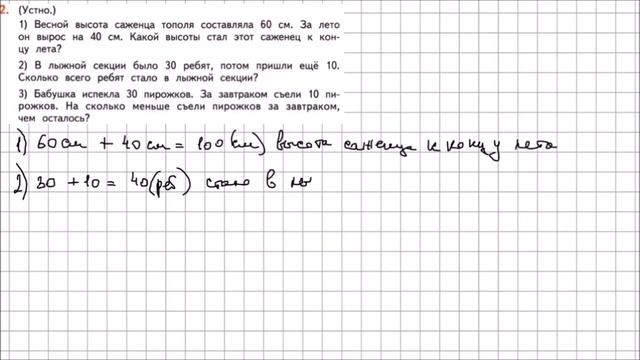 2. (Устно.)
1) Весной высота саженца тополя составляла 60 см. За лето
он вырос на 40 см. Какой высоты стал этот саженец к кон-
цу лета?
2) В лыжной секции было 30 ребят, потом пришли ещё 10.
Сколько всего ребят стало в лыжной секции?
3) Бабушка испекла 30 пирожков. За завтраком съели 10 пи-
рожков. На сколько меньше съели пирожков за завтраком,
чем осталось?
1) 60 см + 40 см = 100 (см) высота саженца к концу лета
2) 30 + 10 = 40 (реб) стало в лы